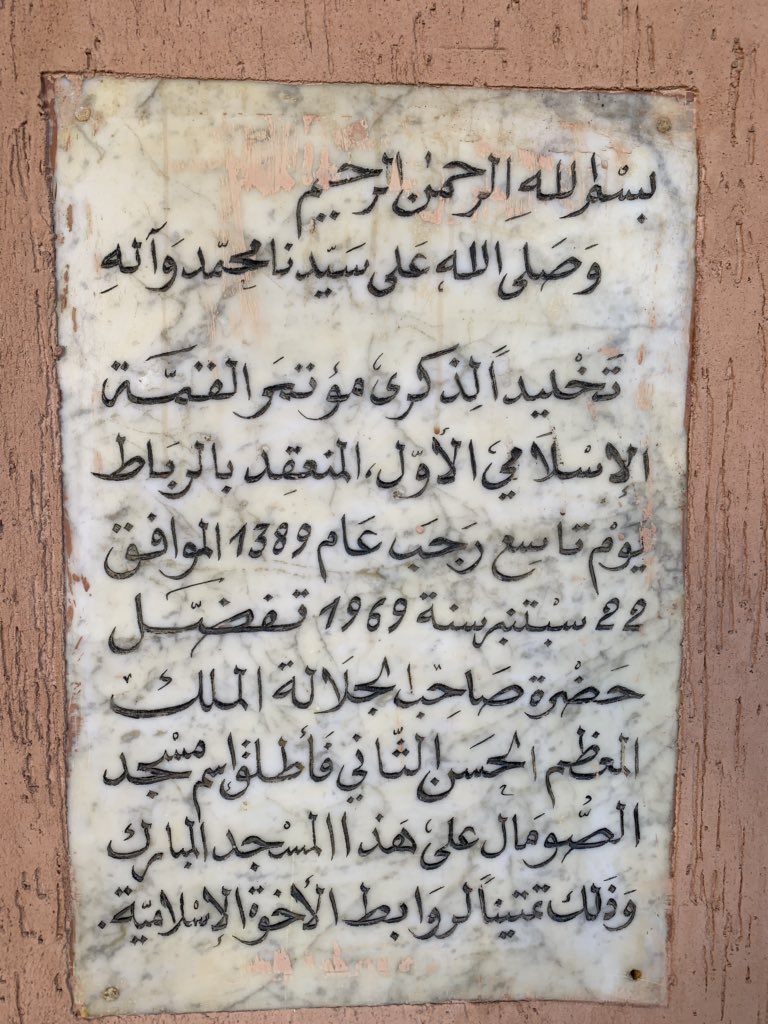 بسْم اللهِ الرحمٰن الرحيم
وَصَلى الله عَلى سَيّدنا محِمّد وَآلهِ
تَخْليداً لِذكرى مؤتمَر القمَّة
الإسْلَامي الأوّل، المنعقِد بالرِبَاط
يَوْم تاسِع رَجَب عَام 1389 الموافق
22 سبْتنبر سنة 1969 تفضّل
حَضْرة صَاحِب الجلَالة الملك
المعظم الحَسَن الثّاني فَأطلق اسم مسْجد
الصُّومَال على هَذا المسْجد المبارك
وَذَلك تمتيناً لروَابط الأخوة الإسْلاميّة.